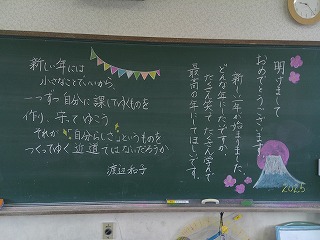 新しい年には
小さなことでいいから、
一つずつ自分に課してゆくものを
作り、守ってゆこう
それが"自分らしさ"というものを
つくってゆく近道ではないだろうか
渡辺和子
明けまして
おめでとうございます。
新しい一年が始まりました。
どんな年にしたいですか。
たくさん笑って、たくさん学んで
最高の年にしてほしいです。
2025